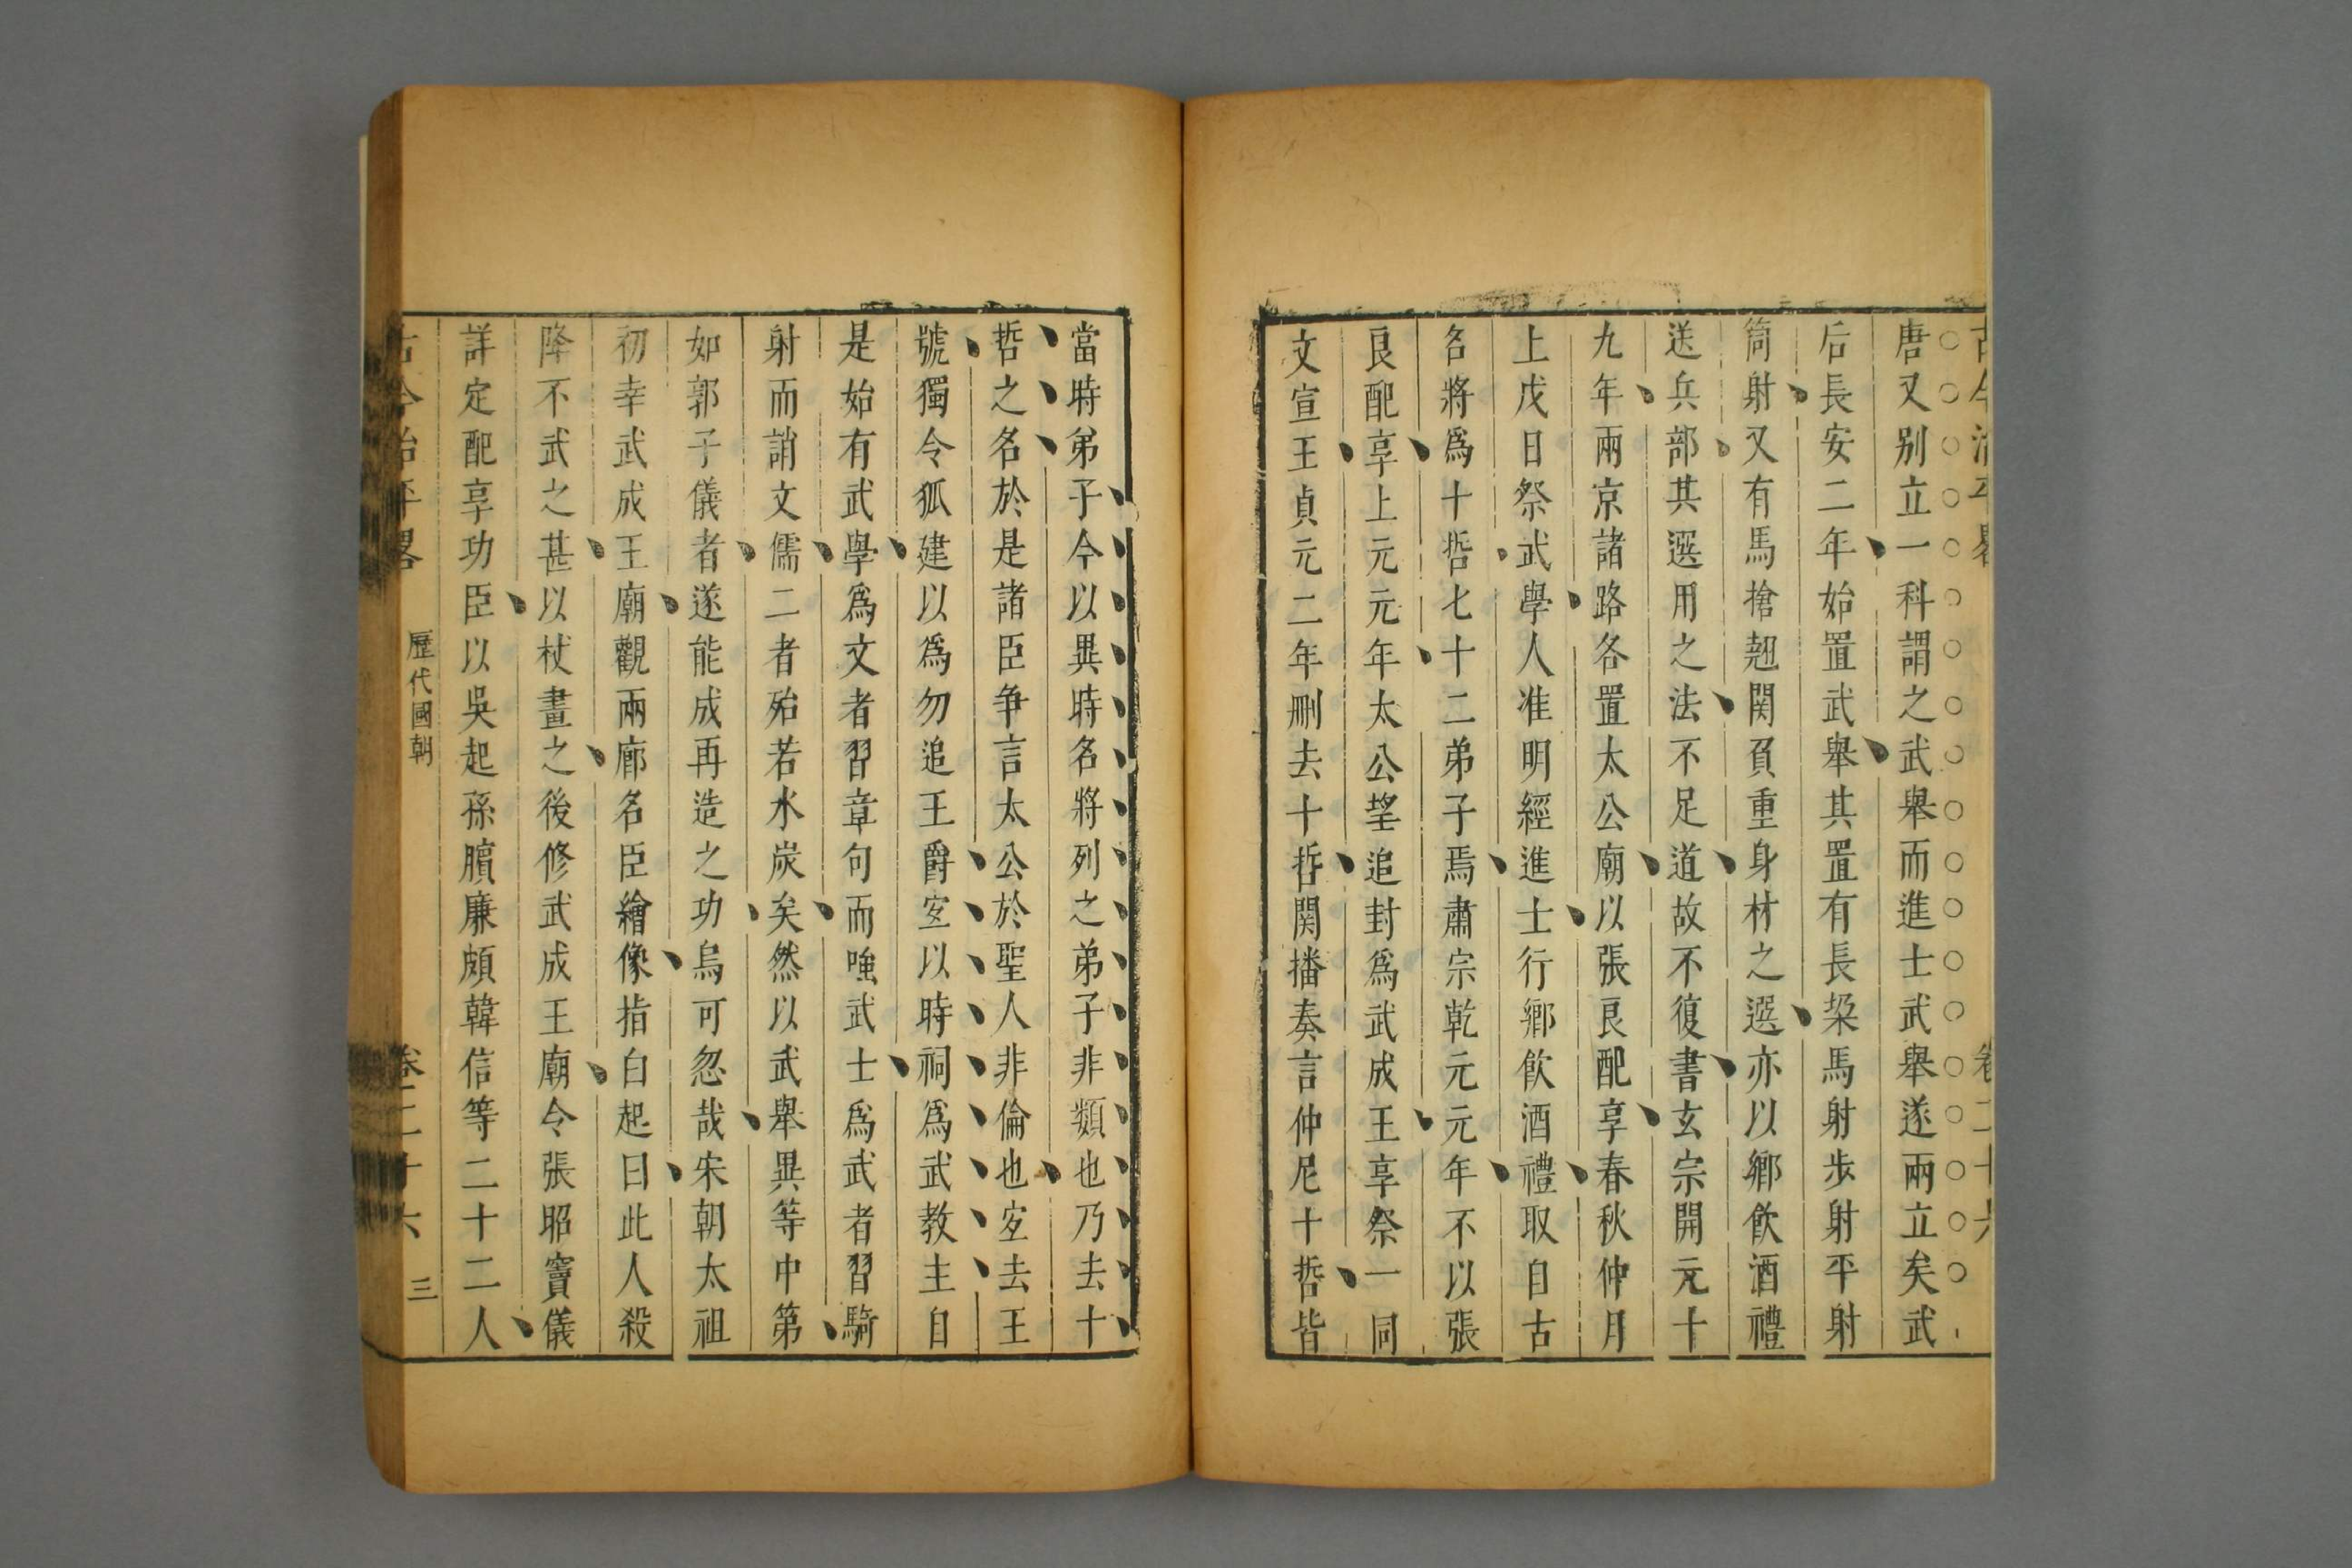 唐又别立一科謂之武舉而進士武舉遂兩立矣武
后長安二年始置武舉其置有長垜馬射步射平射
筒射又有馬搶翹関負重身材之選亦以鄉飲酒禮
送兵部其選用之法不足道故不復書玄宗開元十
九年兩京諸路各置太公廟以張良配享春秋仲月
上戊日祭武學人准明經進士行鄉飲酒禮取自古
名將爲十哲七十二弟子焉肅宗乾元元年不以張
良配享上元元年太公望追封爲武成王享祭一同
文宣王貞元二年刪去十哲関播奏言仲尼十哲皆
當時弟子今以異時名將列之弟子非類也乃去十
哲之名於是諸臣爭言太公於聖人非倫也宐去王
號獨令狐建以爲勿追王爵宐以時祠爲武教主自
是始有武學爲文者習章句而嗤武士爲武者習騎
射而誚文儒二者殆若水炭矣然以武舉異等中第
如郭子儀者遂能成再造之功烏可忽哉宋朝太祖
初幸武成王廟觀兩廊名臣繪像指白起曰此人殺
降不武之甚以杖畫之後修武成王廟令張昭竇儀
詳定配享功臣以吳起孫臏廉頗韓信等二十二人
古今治平畧 歷代國朝 卷二十六 三